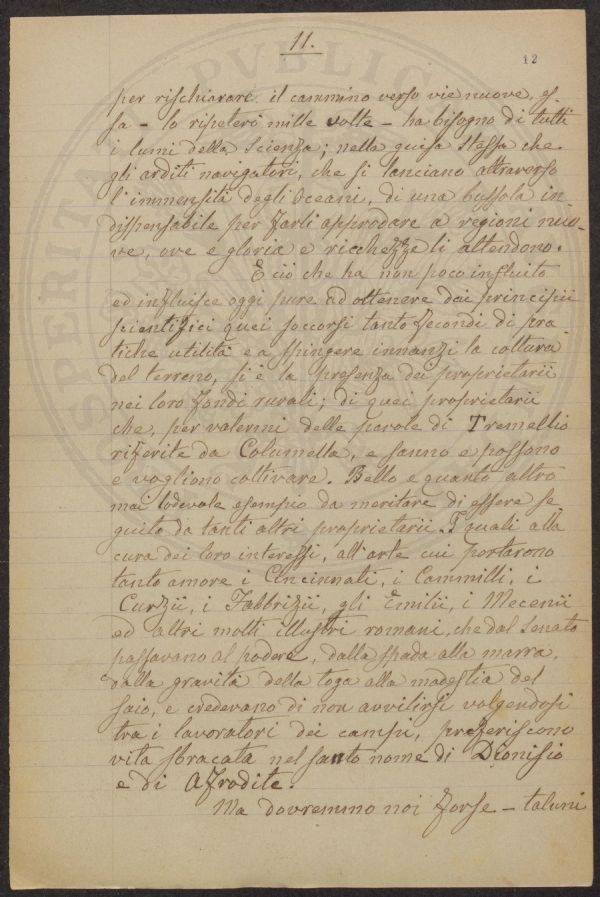 11.
12
per rischiarare il cammino verso vie nuove, es
sa - lo ripeterò mille volte - ha bisogno di tutti
i lumi della Scienza; nella guisa stessa che
gli arditi navigatori, che si lanciano attraverso
l'immensità degli Oceani, di una bussola in
dispensabile per farli approdare a regioni nuo-
ve, ove e gloria e ricchezze li attendono.
E ciò che ha non poco influito
ed influisce oggi pure ad ottenere dai principii
scientifici quei soccorsi tanto fecondi di pra
tiche utilità e a spingere innanzi la coltura
del terreno, si è la presenza dei proprietarii
nei loro fondi rurali; di quei proprietarii
che, per valermi delle parole di Tremellio
riferite da Columella, e sanno e possono
e vogliono coltivare. Bello e quanto altro
mai lodevole esempio da meritare di essere se
guito da tanti altri proprietarii. I quali alla
cura dei loro interessi, all'arte cui portarono
tanto amore i Cincinnati, i Cammilli, i
Curzii, i Fabbrizii, gli Emilii, i Mecenii
ed altri molti illustri romani, che dal Senato
passavano al podere, dalla spada alla marra,
dalla gravità della toga alla modestia del
saio, e credevano di non avvilirsi volgendosi
tra i lavoratori dei campi, preferiscono
vita sbracata nel santo nome di Dionisio
e di Afrodite.
Ma dovremmo noi forse - taluni